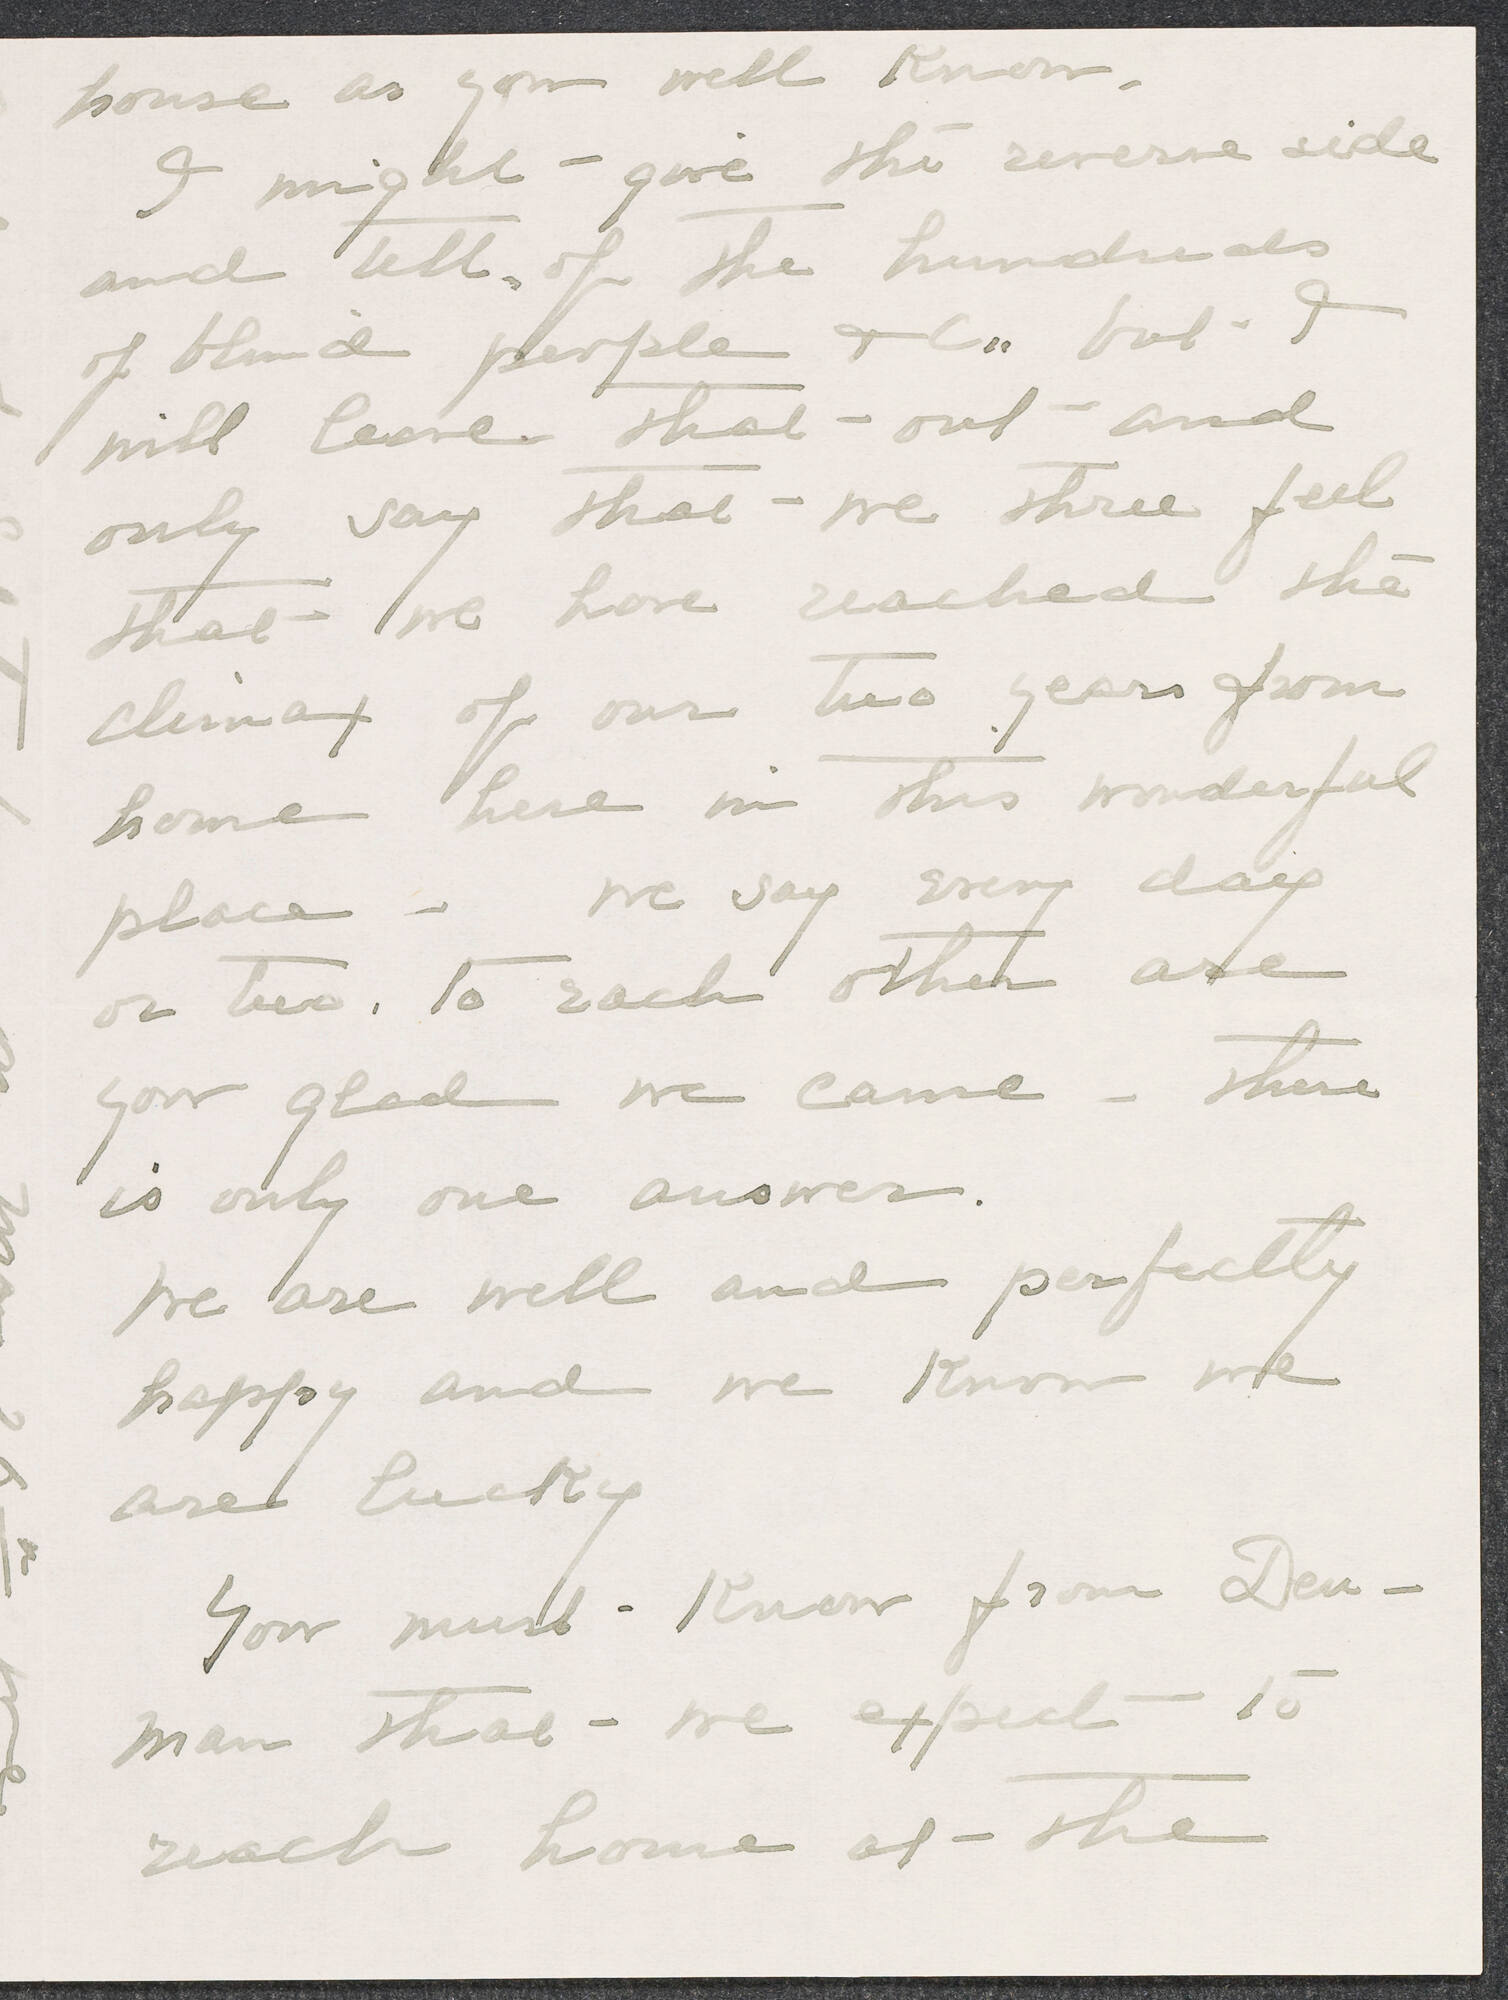 house as you well know.
I might - give the reverse side
and tell, of the hundreds
of blind people &c., but - I
will leave that - out - and
only say that - we three feel
that - we have reached the
climax of our two years from
home here in this wonderful
place - we say every day
or two, to each other are
you glad we came - there
is only one answer.
We are well and perfectly
happy and we know we
are lucky
You must - know from Den-
man that - we expect - to
reach home at - the